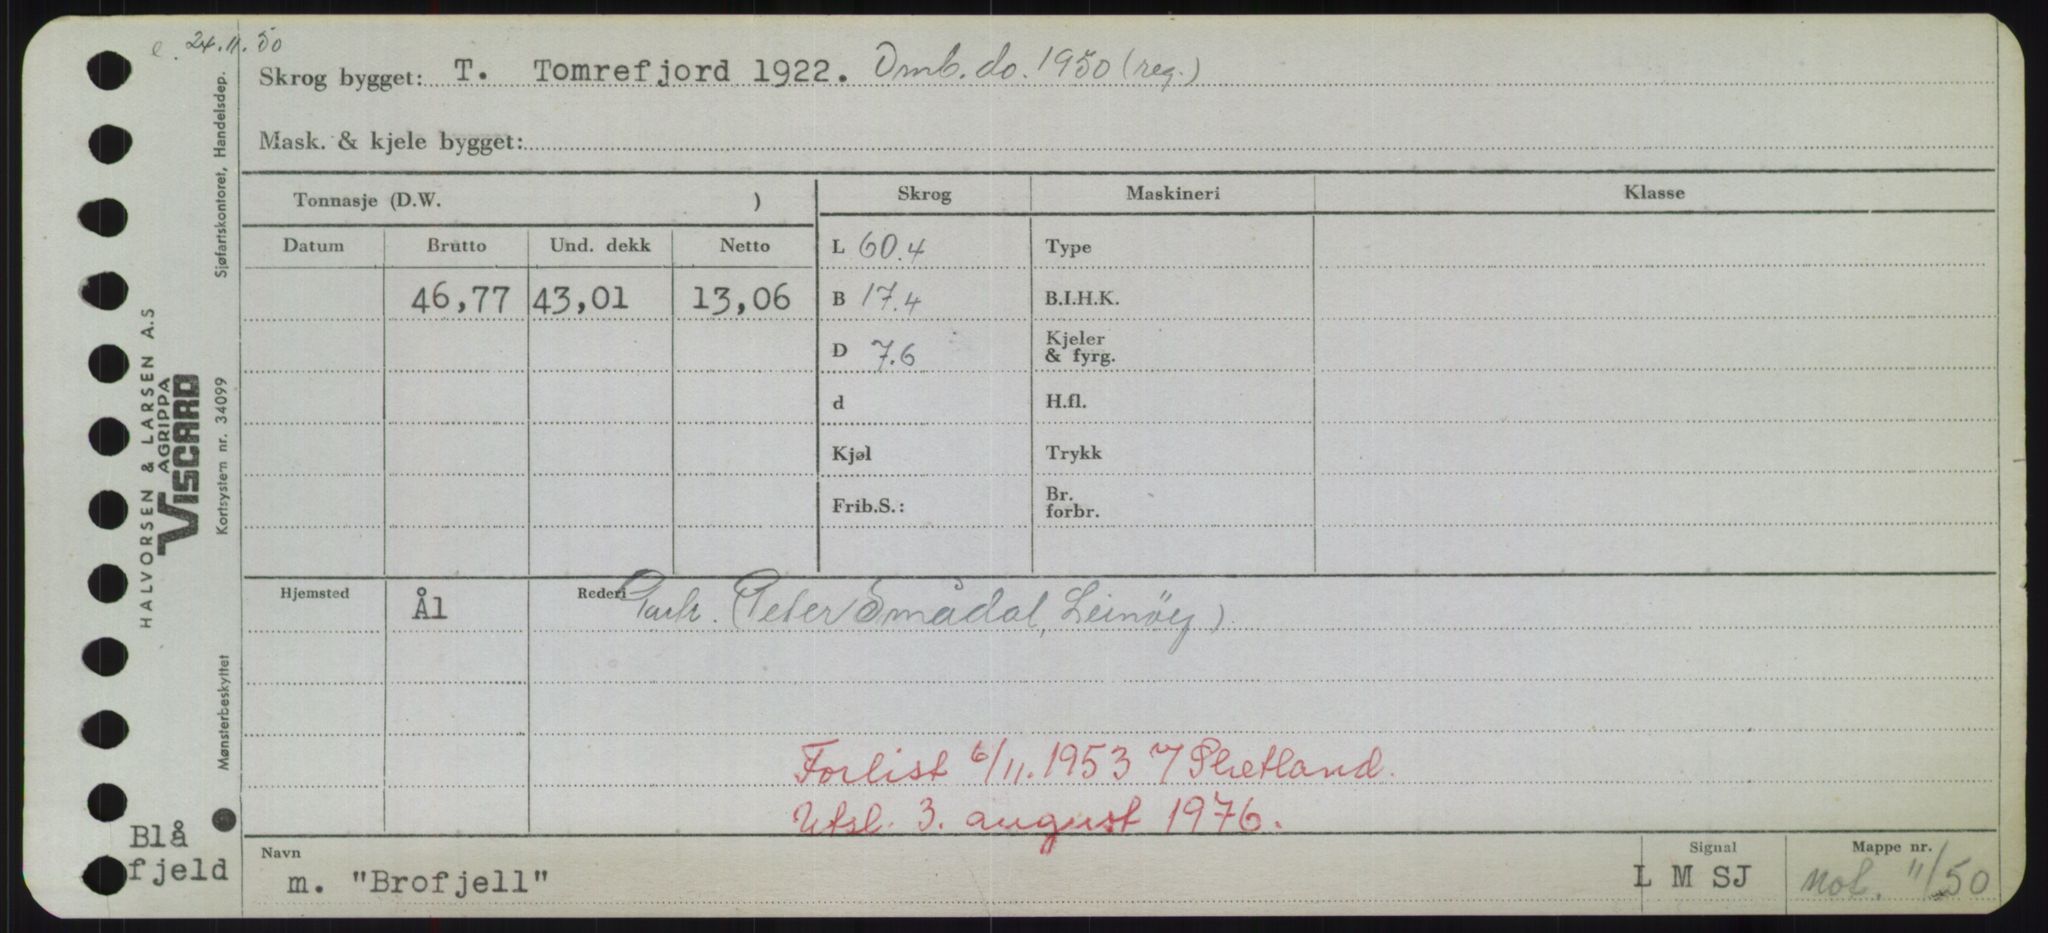 e. 24.11.50
Skrog bygget: T. Tomrefjord 1922. Omb. do. 1950 (reg.)
Mask. & kjele bygget:
Tonnasje (D.W. )
Skrog Maskineri Klasse
Datum Brutto Und. dekk Netto
L 60.4 Type
46,77 43,01 13,06
B 17.4 B.I.H.K.
D 7.6 Kjeler & fyrg.
d H.fl.
Kjøl Trykk
Frib.S.: Br. forbr.
Hjemsted Ål Rederi Partr. (Peter Smådal, Leinöy)
Forlist 6/11.1953 v/ Shetland.
Utsl. 3. august 1976.
Navn Signal Mappe nr.
m. "Brofjell" L M SJ Not. 11/50
Blå
fjeld
HALVORSEN & LARSEN A.S
AGRIPPA
VISCARD
Sjøfartskontoret, Handelsdep.
Kortsystem nr. 34099
Mønsterbeskyttet